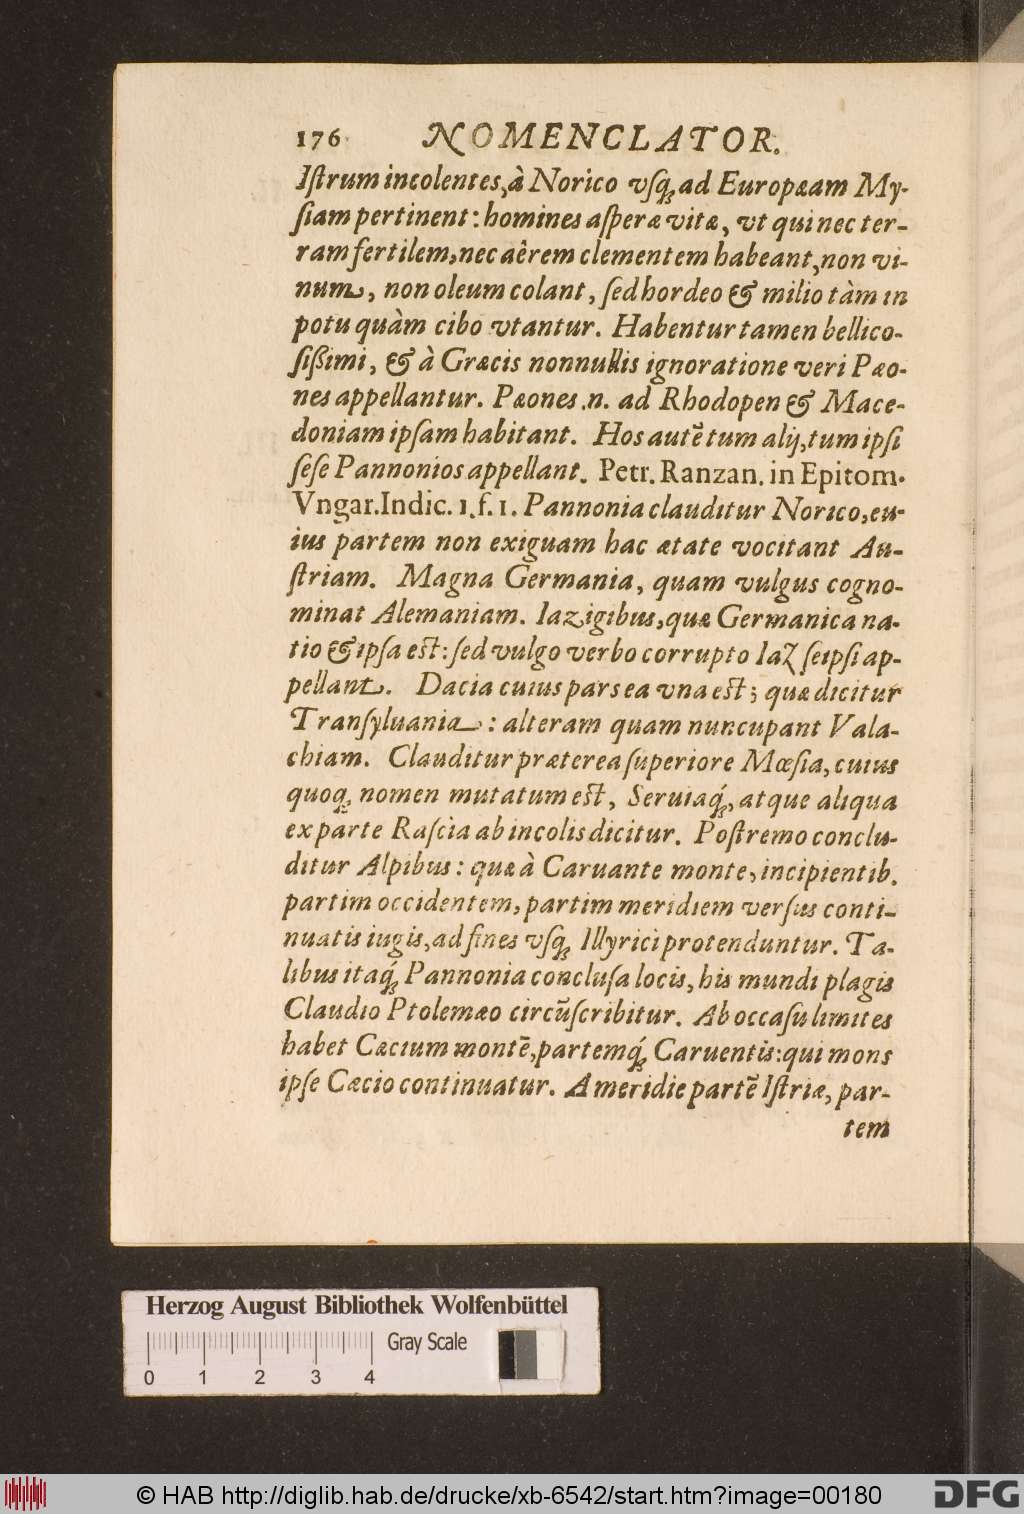 176 NOMENCLATOR.
Iſtrum incolentes, à Norico vſq́; ad Europæam My-
ſiam pertinent: homines aſperæ vitæ, vt qui nec ter-
ram fertilem, nec aêrem clementem habeant, non vi-
num, non oleum colant, ſed hordeo & milio tàm in
potu quàm cibo vtantur. Habentur tamen bellico-
ſißimi, & à Græcis nonnullis ignoratione veri Pæo-
nes appellantur. Pæones .n. ad Rhodopen & Mace-
doniam ipſam habitant. Hos autē tum alij, tum ipſi
ſeſe Pannonios appellant. Petr. Ranzan. in Epitom.
Vngar. Indic. 1. f. 1. Pannonia clauditur Norico, cu-
ius partem non exiguam hac ætate vocitant Au-
ſtriam. Magna Germania, quam vulgus cogno-
minat Alemaniam. Iazigibus, quæ Germanica na-
tio & ipſa eſt: ſed vulgo verbo corrupto Iaz ſeipſi ap-
pellant. Dacia cuius pars ea vna eſt; quæ dicitur
Tranſyluania: alteram quam nuncupant Vala-
chiam. Clauditur præterea ſuperiore Mœſia, cuius
quoq; nomen mutatum eſt, Seruiaq́;, atque aliqua
ex parte Raſcia ab incolis dicitur. Poſtremo conclu-
ditur Alpibus: quæ à Caruante monte, incipientib.
partim occidentem, partim meridiem verſus conti-
nuatis iugis, ad fines vſq; Illyrici protenduntur. Ta-
libus itaq́; Pannonia concluſa locis, his mundi plagis
Claudio Ptolemæo circūſcribitur. Ab occaſu limites
habet Cæcium montē, partemq́; Caruentis: qui mons
ipſe Cæcio continuatur. A meridie partē Iſtriæ, par-
tem
Herzog August Bibliothek Wolfenbüttel
Gray Scale
0 1 2 3 4
© HAB http://diglib.hab.de/drucke/xb-6542/start.htm?image=00180
DFG